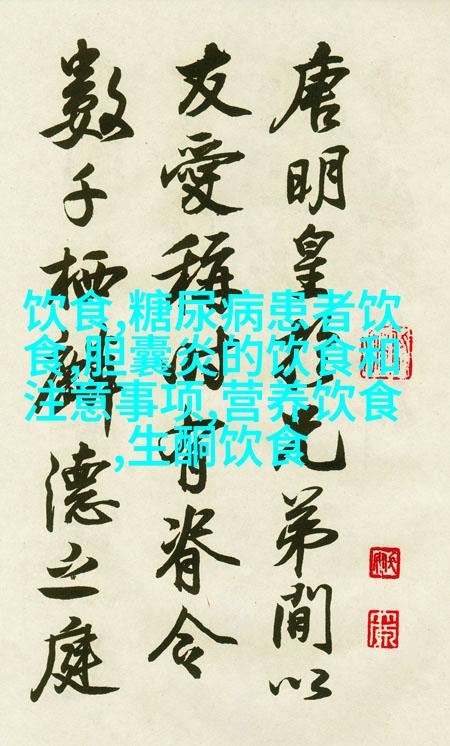 唐明皇於兄弟間以
友愛稱時有脊令
數千栖麟德之庭
饮食,糖尿病患者饮
食,胆囊炎的饮食和
注意事项,营养饮食
,生酮饮食